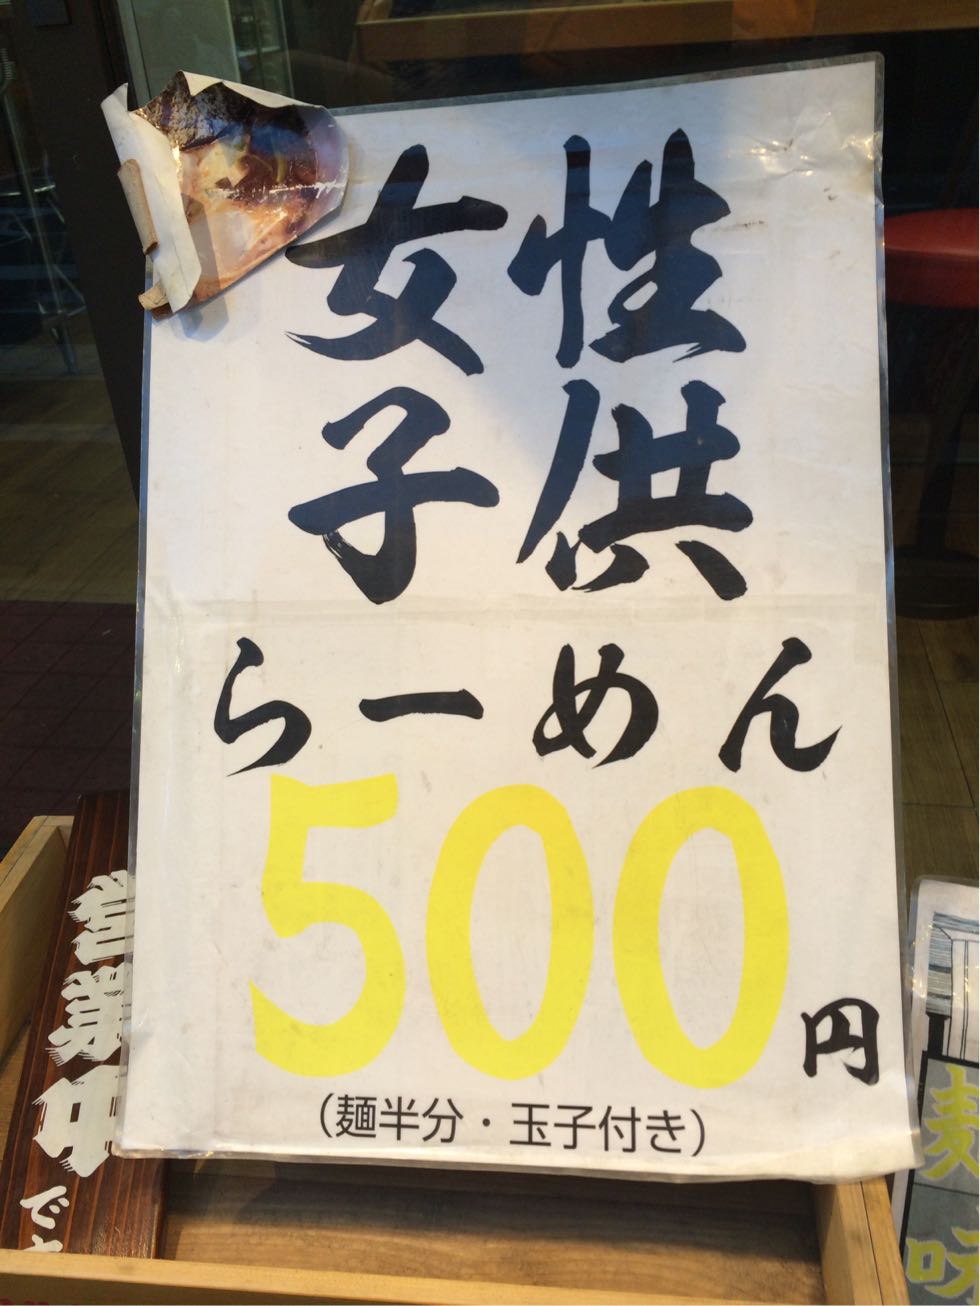 女性
子供
らーめん
500円
(麺半分・玉子付き)
営業中